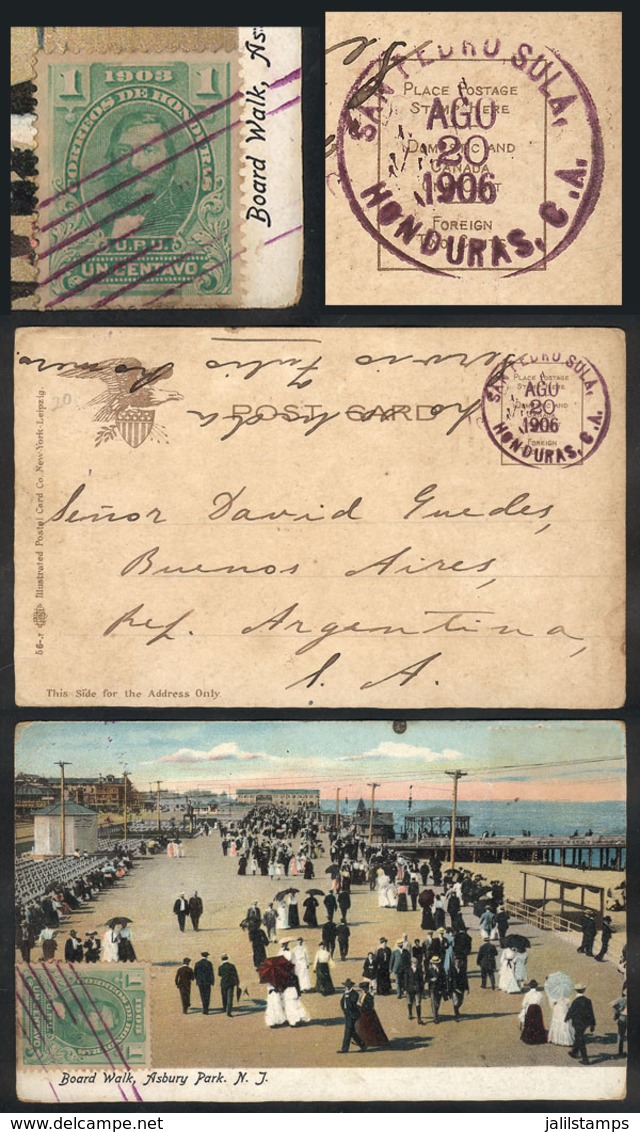 1 1903 1
CORREOS DE HONDURAS
U.P.U.
UN CENTAVO
Board Walk, As
SAN PEDRO SULA,
AGO
20
1906
HONDURAS, C.A.
PLACE POSTAGE
STAMP HERE
DOMESTIC AND
CANADA
FOREIGN
POST CARD
SAN PEDRO SULA,
AGO
20
1906
HONDURAS, C.A.
PLACE POSTAGE
DOMESTIC AND
FOREIGN
Illustrated Postal Card Co. New York-Leipzig.
20
Señor David Guedes,
Buenos Aires,
Rep. Argentina,
S. A.
This Side for the Address Only.
1 1903 1
CORREOS DE HONDURAS
UN CENTAVO
Board Walk, Asbury Park. N. J.
jalilstamps